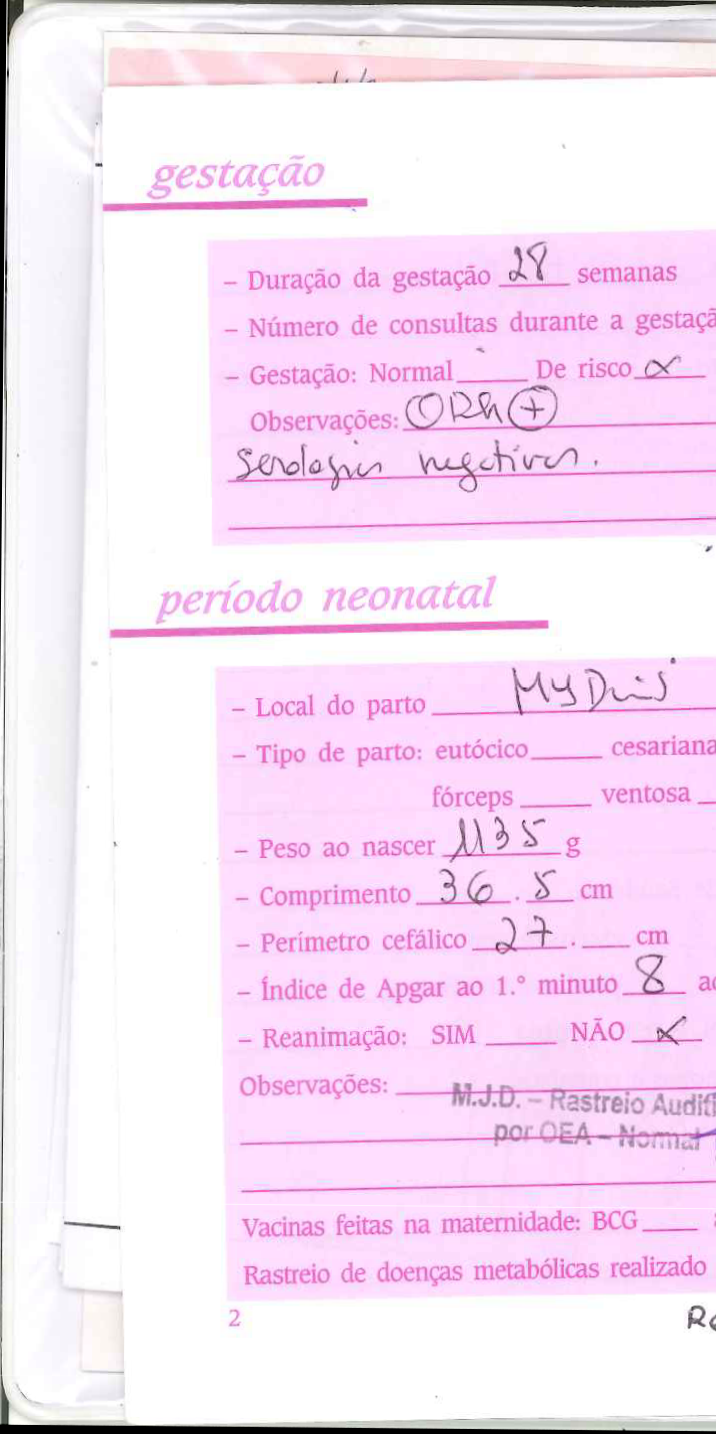 gestação
– Duração da gestação 28 semanas
– Número de consultas durante a gestaçã
– Gestação: Normal____ De risco x
Observações: ORh(+)
Serologias negativas.
período neonatal
– Local do parto
– Tipo de parto: eutócico____ cesariana
fórceps ____ ventosa
– Peso ao nascer 1135 g
– Comprimento 36.5 cm
– Perímetro cefálico 27.___ cm
– Índice de Apgar ao 1.º minuto 8 ao
– Reanimação: SIM ____ NÃO x
Observações: M.J.D. – Rastreio Auditi
por OEA – Normal
Vacinas feitas na maternidade: BCG____
Rastreio de doenças metabólicas realizado
2